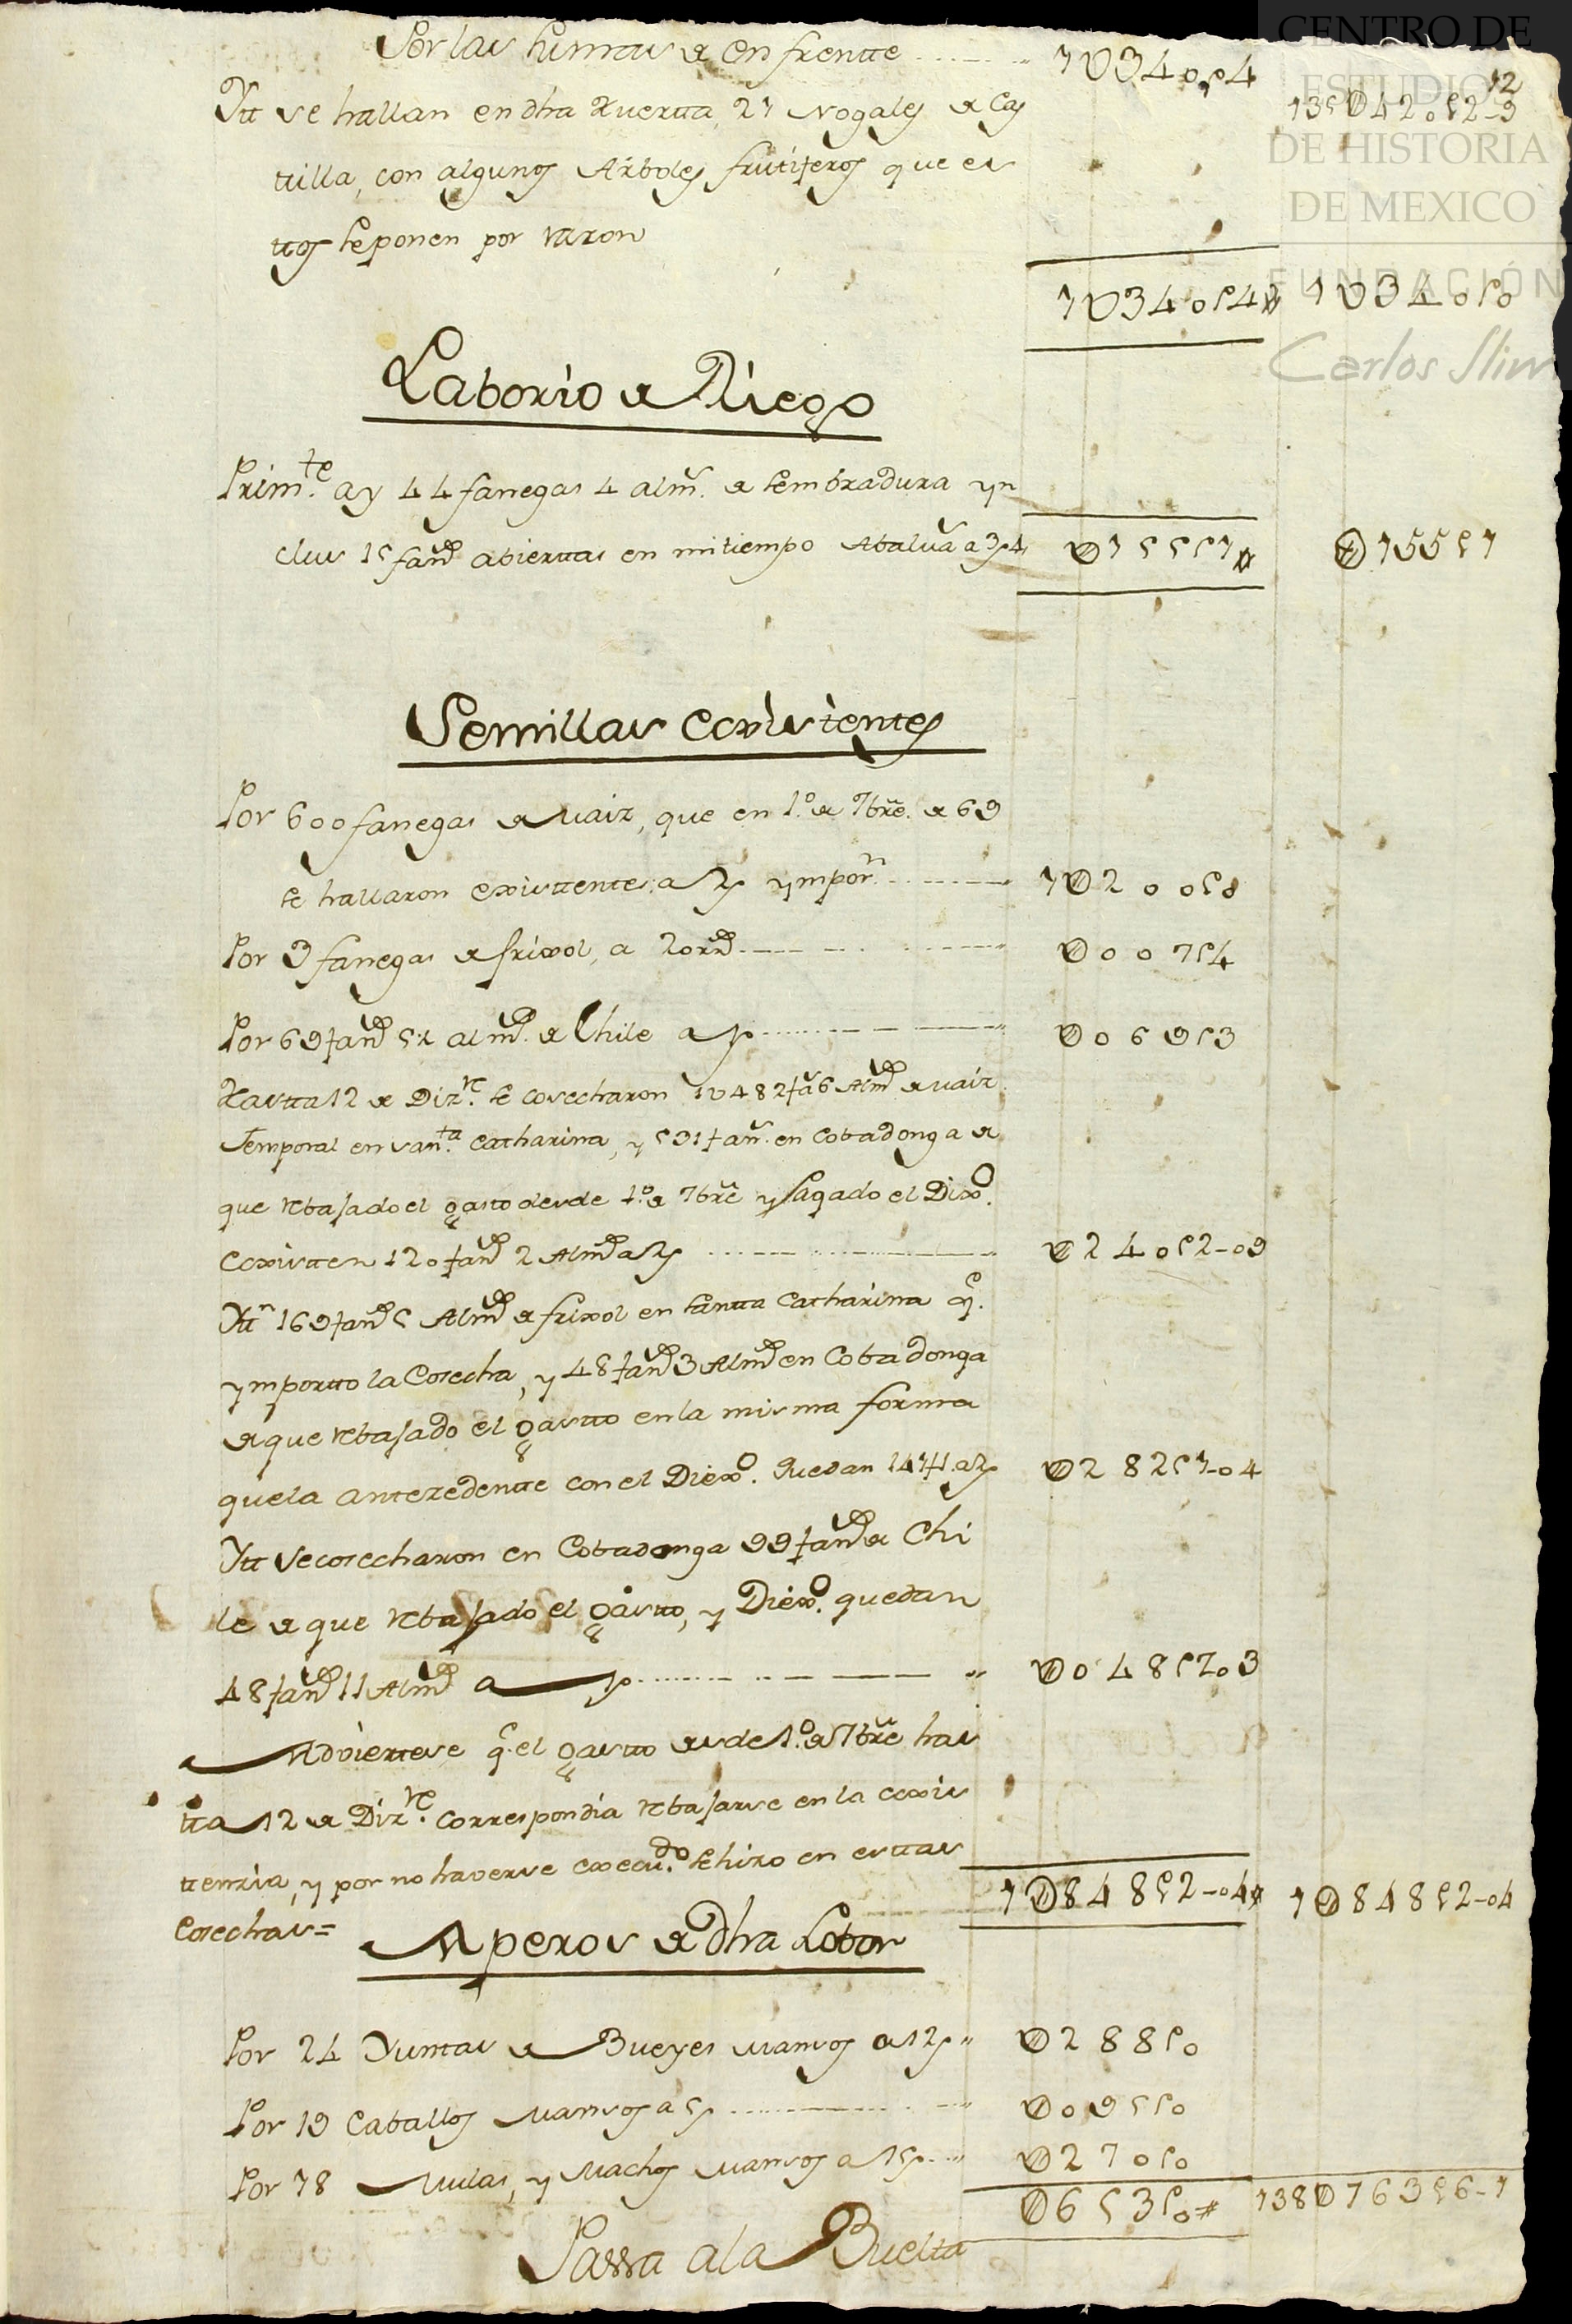 CENTRO DE
ESTUDIOS
DE HISTORIA
DE MEXICO
FUNDACIÓN
Carlos Slim
12
Por las sumas de en frentte 1U034,,4
135U042,,2-3
Ytt se hallan en dha Huertta, 21 Nogales de Cas
tilla, con algunos Arboles frutiferos que es
ttos se ponen por razon
1U034,,4 1U034,,0
Laborio de Riego
Prim.te ay 44 fanegas 4 alm.s de sembradura yn
clus 15 fan.s abierttas en mi tiempo U155,,1 U155,,1
Semillas Exsistentes
Por 600 fanegas de Maiz, que en 1.º de 7bre. de 69
se hallaron exsisttentes a 2p ympor.n 1U200,,0
Por 3 fanegas de frixol, a 20 rrs U007,,4
Por 69 fans 5½ alms. de Chile a 1p U069,,3
Hastta 12 de Diz.re se cosecharon 1U482 fas 6 Alms de Maiz
Temporal en san.ta Catharina, y 591 fans. en Cobadonga de
que rebajado el gasto desde 1.º de 7bre y sagado el Dixo.
exsistten 120 fans 2 Alms a 2p U240,,2-09
Yttn 169 fans 5 Alms de frixol en santta Catharina q.e
ymportto la Cosecha, y 48 fans 3 Alms en Cobadonga
de que rebajado el gastto en la misma forma
que la anttezedentte con el Diexo. quedan 141 f 1 a 2p U282,,1-04
Ytt se cosecharon en Cobadonga 99 fans de Chi
le de que rebajado el gastto, y Diexo. quedan
48 fans 11 Alms a 1p U048,,7-03
Advierttese q.e el gastto desde 1.º de 7bre has
tta 12 de Diz.re correspondia rebajarse en la exsis
ttenzia, y por no haverse execu.do se hizo en esttas
Cosechas= 1U848,,2-04 1U848,,2-04
Aperos de dha Labor
Por 24 Yuntas de Bueyes mansos a 12p U288,,0
Por 19 Caballos mansos a 5p U095,,0
Por 18 Mulas, y Machos mansos a 15p U270,,0
U653,,0 138U076,,6-1
Passa a la Buelta